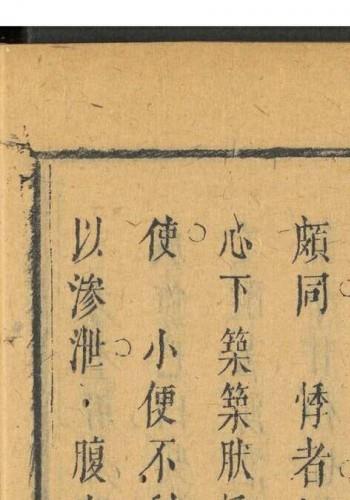 頗同 悸者
心下築築肰
使 小便不
以滲泄 腹